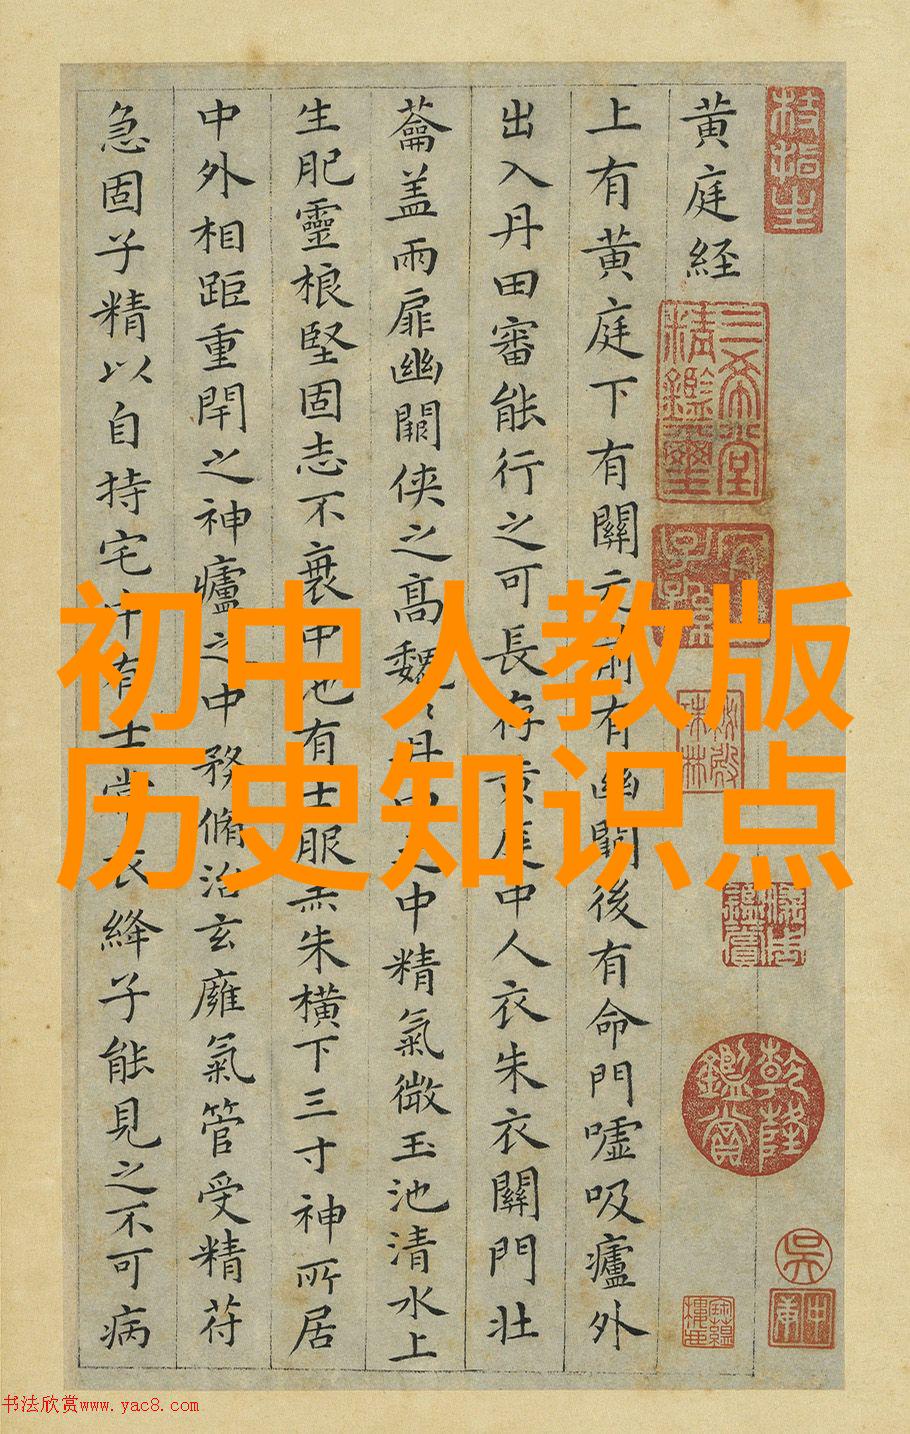 初中人教版
历史知识点
黄庭経
上有黄庭下有關元前有幽闕後有命門嘘吸廬外
出入丹田審能行之可長存黄庭中人衣朱衣關門壮
蘥盖兩扉幽闕俠之高魏〻丹田之中精氣微玉池清水上
生肥靈根堅固志不衰中池有士服赤朱横下三寸神所居
中外相距重閇之神廬之中務脩治玄廱氣管受精苻
急固子精以自持宅中有士常衣絳子能見之不可病
三希堂精鑑璽
宜子孫
乾隆鑑賞
吳
书法欣赏www.yac8.com